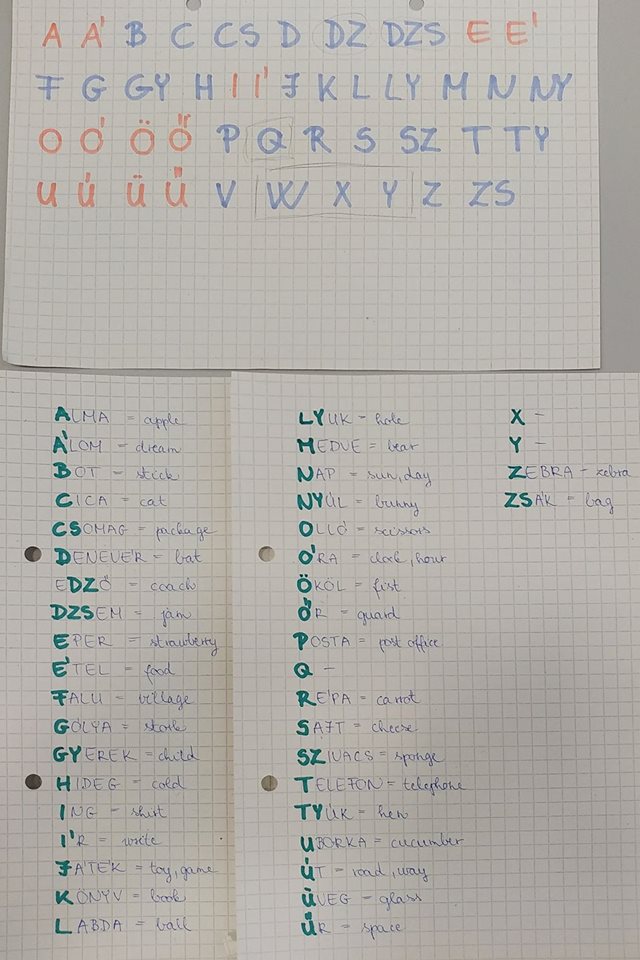 A Á B C CS D DZ DZS E É
F G GY H I Í J K L LY M N NY
O Ó Ö Ő P Q R S SZ T TY
U Ú Ü Ű V W X Y Z ZS
ALMA = apple
ÁLOM - dream
BOT - stick
CICA = cat
CSOMAG = package
DENEVÉR = bat
EDZŐ = coach
DZSEM = jam
EPER = strawberry
ÉTEL = food
FALU = village
GÓLYA = stork
GYEREK = child
HIDEG - cold
ING - shirt
ÍR = write
JÁTÉK = toy, game
KÖNYV = book
LABDA = ball
LYUK - hole
MEDVE = bear
NAP = sun, day
NYÚL = bunny
OLLÓ = scissors
ÓRA = clock, hour
ÖKÖL = fist
ŐR = guard
POSTA = post office
Q -
RÉPA = carrot
SAJT = cheese
SZIVACS = sponge
TELEFON = telephone
TYÚK = hen
UBORKA = cucumber
ÚT = road, way
ÜVEG - glass
ŰR = space
X -
Y -
ZEBRA - zebra
ZSÁK = bag